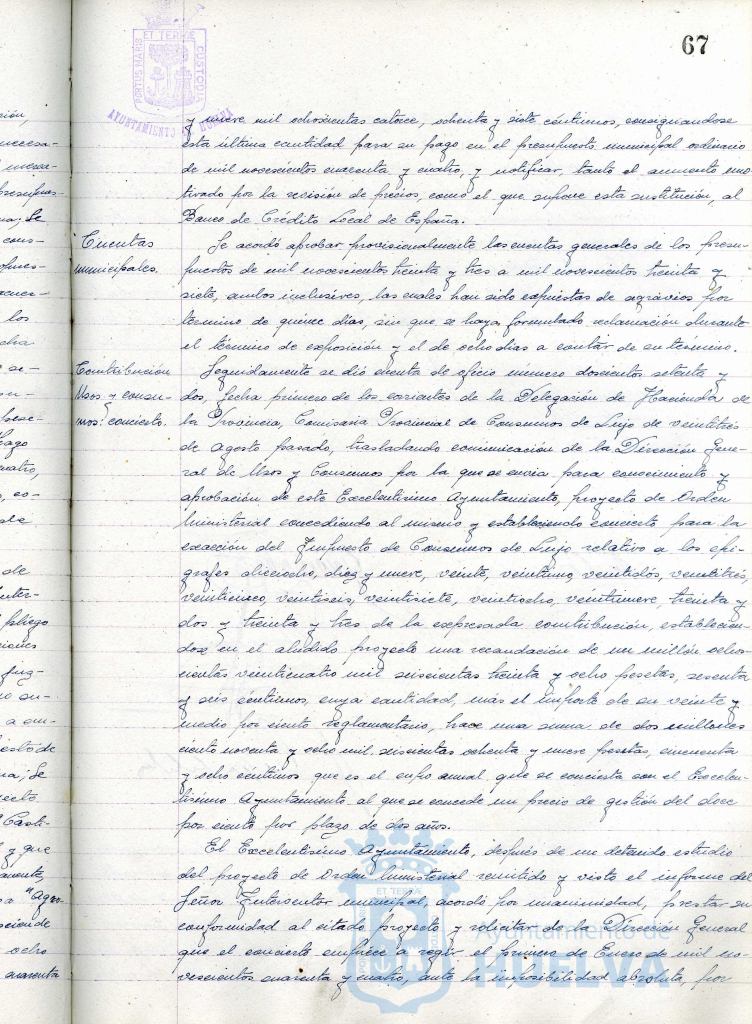 67
PORTUS MARIS ET TERRÆ CUSTODIA
AYUNTAMIENTO DE HUELVA
y nueve mil ochoscientas catorce, ochenta y siete céntimos, consignandose
esta última cantidad para su pago en el presupuesto municipal ordinario
de mil novescientos cuarenta y cuatro, y notificar, tanto el aumento mo-
tivado por la revisión de précios, como el que supone esta sustitución, al
Banco de Crédito Local de España.
Cuentas
municipales.
Se acordó aprobar provisionalmente las cuentas generales de los presu-
puestos de mil novescientos treinta y tres a mil novescientos treinta y
siete, ambos inclusives, las cuales han sido expuestas de agravios por
término de quince días, sin que se haya formulado reclamación durante
el término de exposición y el de ocho dias a contar de su término.
Contribución
Usos y consu-
mos: concierto.
Seguidamente se dió cuenta de oficio número doscientos setenta y
dos, fecha primero de los corrientes de la Delegación de Hacienda de
la Provincia, Comisaria Provincial de Consumos de Lujo de veintitrés
de agosto pasado, trasladando comunicación de la Dirección Gene-
ral de Usos y Consumos por la que se envia para conocimiento y
aprobación de este Excelentísimo Ayuntamiento, proyecto de Orden
Ministerial concediendo al mismo y estableciendo concierto para la
exacción del Impuesto de Consumos de Lujo relativo a los epí-
grafes dieciocho, diez y nueve, veinte, veintiuno, veintidós, veintitrés
veinticinco, veintiseis, veintisiete, veintiocho, veintinueve, treinta y
dos y treinta y tres de la expresada contribución, establecien-
dose en el aludido proyecto una recaudación de un millón ochos-
cientas veinticuatro mil seiscientas treinta y ocho pesetas, sesenta
y seis céntimos, cuya cantidad, más el importe de su veinte y
medio por ciento reglamentario, hace una suma de dos millones
ciento noventa y ocho mil seiscientas ochenta y nueve pesetas, cincuenta
y ocho céntimos que es el cupo anual que se concierta con el Excelen-
tísimo Ayuntamiento al que se concede un precio de gestión del doce
por ciento por plazo de dos años.
El Excelentísimo Ayuntamiento, después de un detenido estudio
del proyecto de Orden Ministerial remitido y visto el informe del
Señor Interventor municipal, acordó por unanimidad, prestar su
conformidad al citado proyecto y solicitar de la Dirección General
que el concierto empiece a regir el primero de Enero de mil no-
vescientos cuarenta y cuatro, ante la imposibilidad absoluta, por
ET TERRÆ
Ayuntamiento de
HUELVA